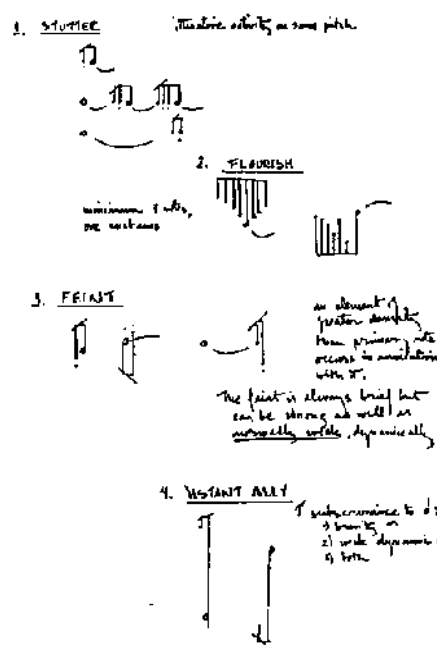 1. STUTTER
activity on same pitch
2. FLOURISH
minimum
3. FEINT
an element of
greater density
than primary note
occurs in
with it.
The feint is always brief but
can be strong as well as
normally wide, dynamically
4. DISTANT ALLY
subservience to
1) brevity or
2) wide dynamic
3) both